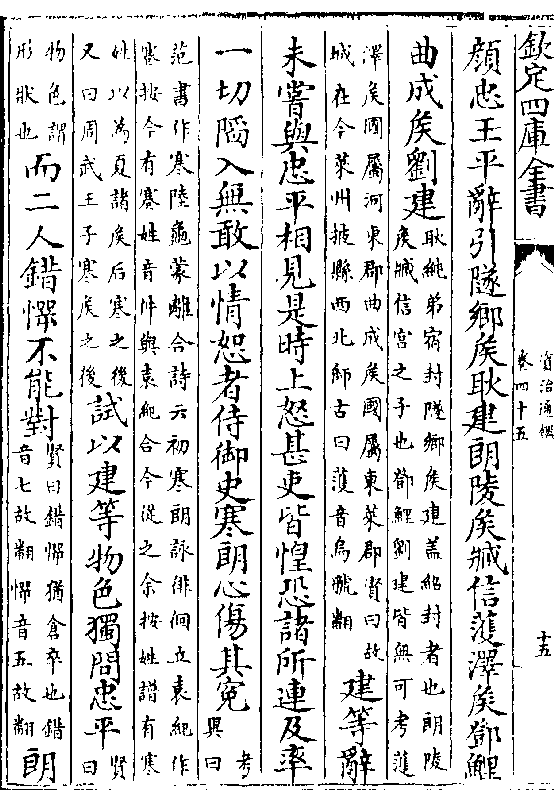 欽定四庫全書
資治通鑑
卷四十五
十五
顔忠王平辭引隧鄉矦耿建朗陵矦臧信濩澤矦鄧鯉
曲成矦劉建
耿純弟宿封隧鄉矦建蓋紹封者也朗陵
矦臧信宫之子也鄧鯉劉建皆無可考濩
澤矦國屬河東郡曲成矦國屬東萊郡賢曰故
城在今萊州掖縣西北師古曰濩音烏虢翻
建等辭
未嘗與忠平相見是時上怒甚吏皆惶恐諸所連及率
一切陷入無敢以情恕者侍御史寒朗心傷其寃
考
異曰
范書作寒陸龜蒙離合詩云初寒朗詠徘徊立袁紀作
寋按今有寋姓音件與袁紀合今從之余按姓譜有寒
姓以為夏諸矦后寒之後
又曰周武王子寒矦之後
試以建等物色獨問忠平
賢
曰
物色謂
形狀也
而二人錯愕不能對
賢曰錯愕猶倉卒也錯
音七故翻愕音五故翻
朗